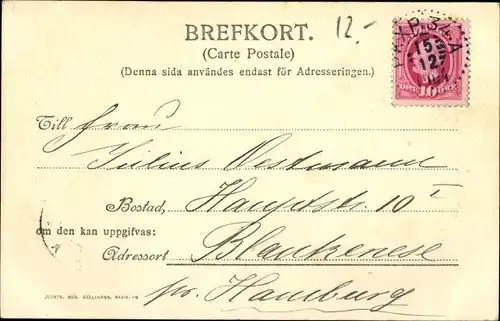 BREFKORT. 12.-
(Carte Postale)
(Denna sida användes endast för Adresseringen.)
Till Frau
Julius Oestmann
Bostad, Hauptstr. 10 I
om den kan uppgifvas:
Adressort Blankenese
pr. Hamburg
PKXP
15
12
10